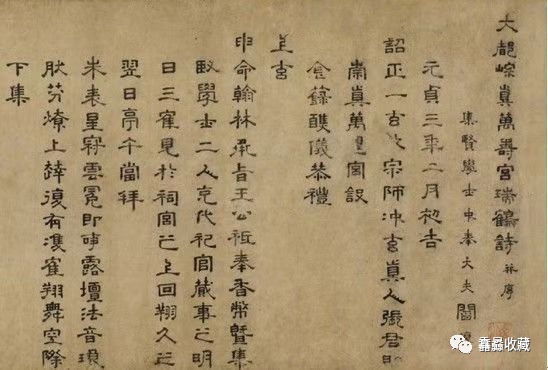 大都崇真萬壽宮瑞鶴詩并序
集賢學士中奉大夫閻
元貞三年二月初吉
詔正一玄教宗師沖玄真人張君即
崇真萬壽宮設
金籙醮儀恭禮
上玄
申命翰林承旨王公祗奉香幣暨集
賢學士二人充代祀官蕆事之明
日三鶴見於祠宮之上回翔久之
翌日亭午當拜
朱表星冠雲冕即事露壇法音琅
然芬燎上復有鶴翔舞空際
下集
矗蟲收藏